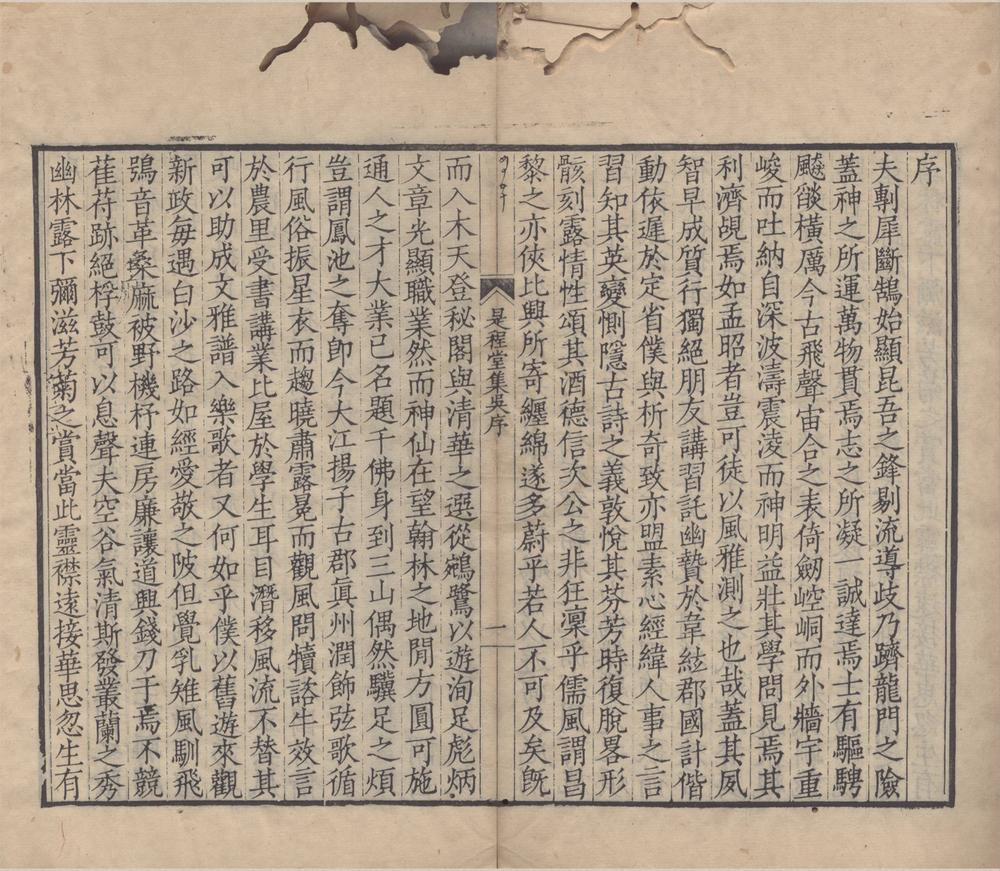 序
夫剸犀斷鵠始顯昆吾之鋒剔流導歧乃躋龍門之險
蓋神之所運萬物貫焉志之所凝一誠達焉士有驅騁
飇燄橫厲今古飛聲宙合之表倚劒崆峒而外牆宇重
峻而吐納自深波濤震淩而神明益壯其學問見焉其
利濟覘焉如孟昭者豈可徒以風雅測之也哉蓋其夙
智早成質行獨絕朋友講習託幽贄於韋絃郡國計偕
動依遲於定省僕與析奇致亦盟素心經緯人事之言
習知其英變惻隱古詩之義敦悅其芬芳時復脫畧形
骸刻露情性頌其酒德信次公之非狂凜乎儒風謂昌
黎之亦俠比興所寄纏綿遂多蔚乎若人不可及矣旣
是程堂集吳序
一
而入木天登秘閣與清華之選從鵷鷺以遊洵足彪炳
文章光顯職業然而神仙在望翰林之地閒方圓可施
通人之才大業已名題千佛身到三山偶然驥足之煩
豈謂鳳池之奪卽今大江揚子古郡眞州潤飾弦歌循
行風俗振星衣而趨曉肅露冕而觀風問犢諮牛效言
於農里受書講業比屋於學生耳目潛移風流不替其
可以助成文雅譜入樂歌者又何如乎僕以舊遊來觀
新政每遇白沙之路如經愛敬之陂但覺乳雉風馴飛
鴞音革桑麻被野機杼連房廉讓道興錢刀于焉不競
萑苻跡絕桴鼓可以息聲夫空谷氣清斯發叢蘭之秀
幽林露下彌滋芳菊之賞當此靈襟遠接華思忽生有